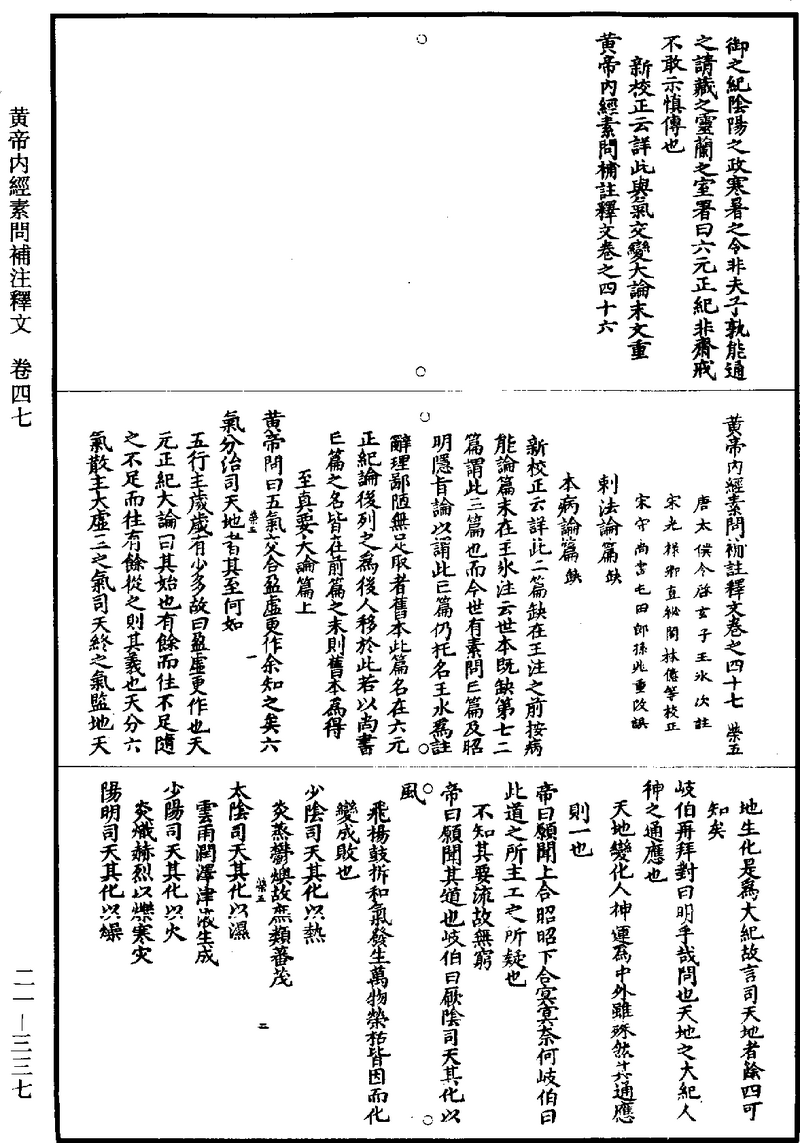 黃帝內經素問補注釋文　卷四七
二一—三三七
御之紀陰陽之政寒暑之令非夫子孰能通
之請藏之靈蘭之室署曰六元正紀非齋戒
不敢示慎傳也
新校正云詳此與氣交變大論末文重
黃帝內經素問補註釋文卷之四十六
黃帝內經素問補註釋文卷之四十七　柴五
唐太僕令啓玄子王冰次註
宋光祿卿直祕閣林億等校正
宋守尚書屯田郎孫兆重改誤
刺法論篇缺
本病論篇缺
新校正云詳此二篇缺在王注之前按病
能論篇末在王冰注云世本既缺第七二
篇謂此二篇也而今世有素問亡篇及昭
明隱旨論以謂此三篇仍托名王冰爲註
辭理鄙陋無足取者舊本此篇名在六元
正紀論後列之爲後人移於此若以尚書
亡篇之名皆在前篇之末則舊本爲得
至真要大論篇上
黃帝問曰五氣交合盈虛更作余知之矣六
氣分治司天地者其至何如
柴五　一
五行主歲歲有少多故曰盈虛更作也天
元正紀大論曰其始也有餘而往不足隨
之不足而往有餘從之則其義也天分六
氣散主太虛三之氣司天終之氣監地天
地生化是爲大紀故言司天地者餘四可
知矣
岐伯再拜對曰明乎哉問也天地之大紀人
神之通應也
天地變化人神運爲中外雖殊然其通應
則一也
帝曰願聞上合昭昭下合冥冥奈何岐伯曰
此道之所主工之所疑也
不知其要流故無窮
帝曰願聞其道也岐伯曰厥陰司天其化以
風
飛楊鼓拆和氣發生萬物榮枯皆因而化
變成敗也
少陰司天其化以熱
炎蒸鬱燠故庶類蕃茂
柴五　二
太陰司天其化以濕
雲雨潤澤津液生成
少陽司天其化以火
炎熾赫烈以爍寒災
陽明司天其化以燥